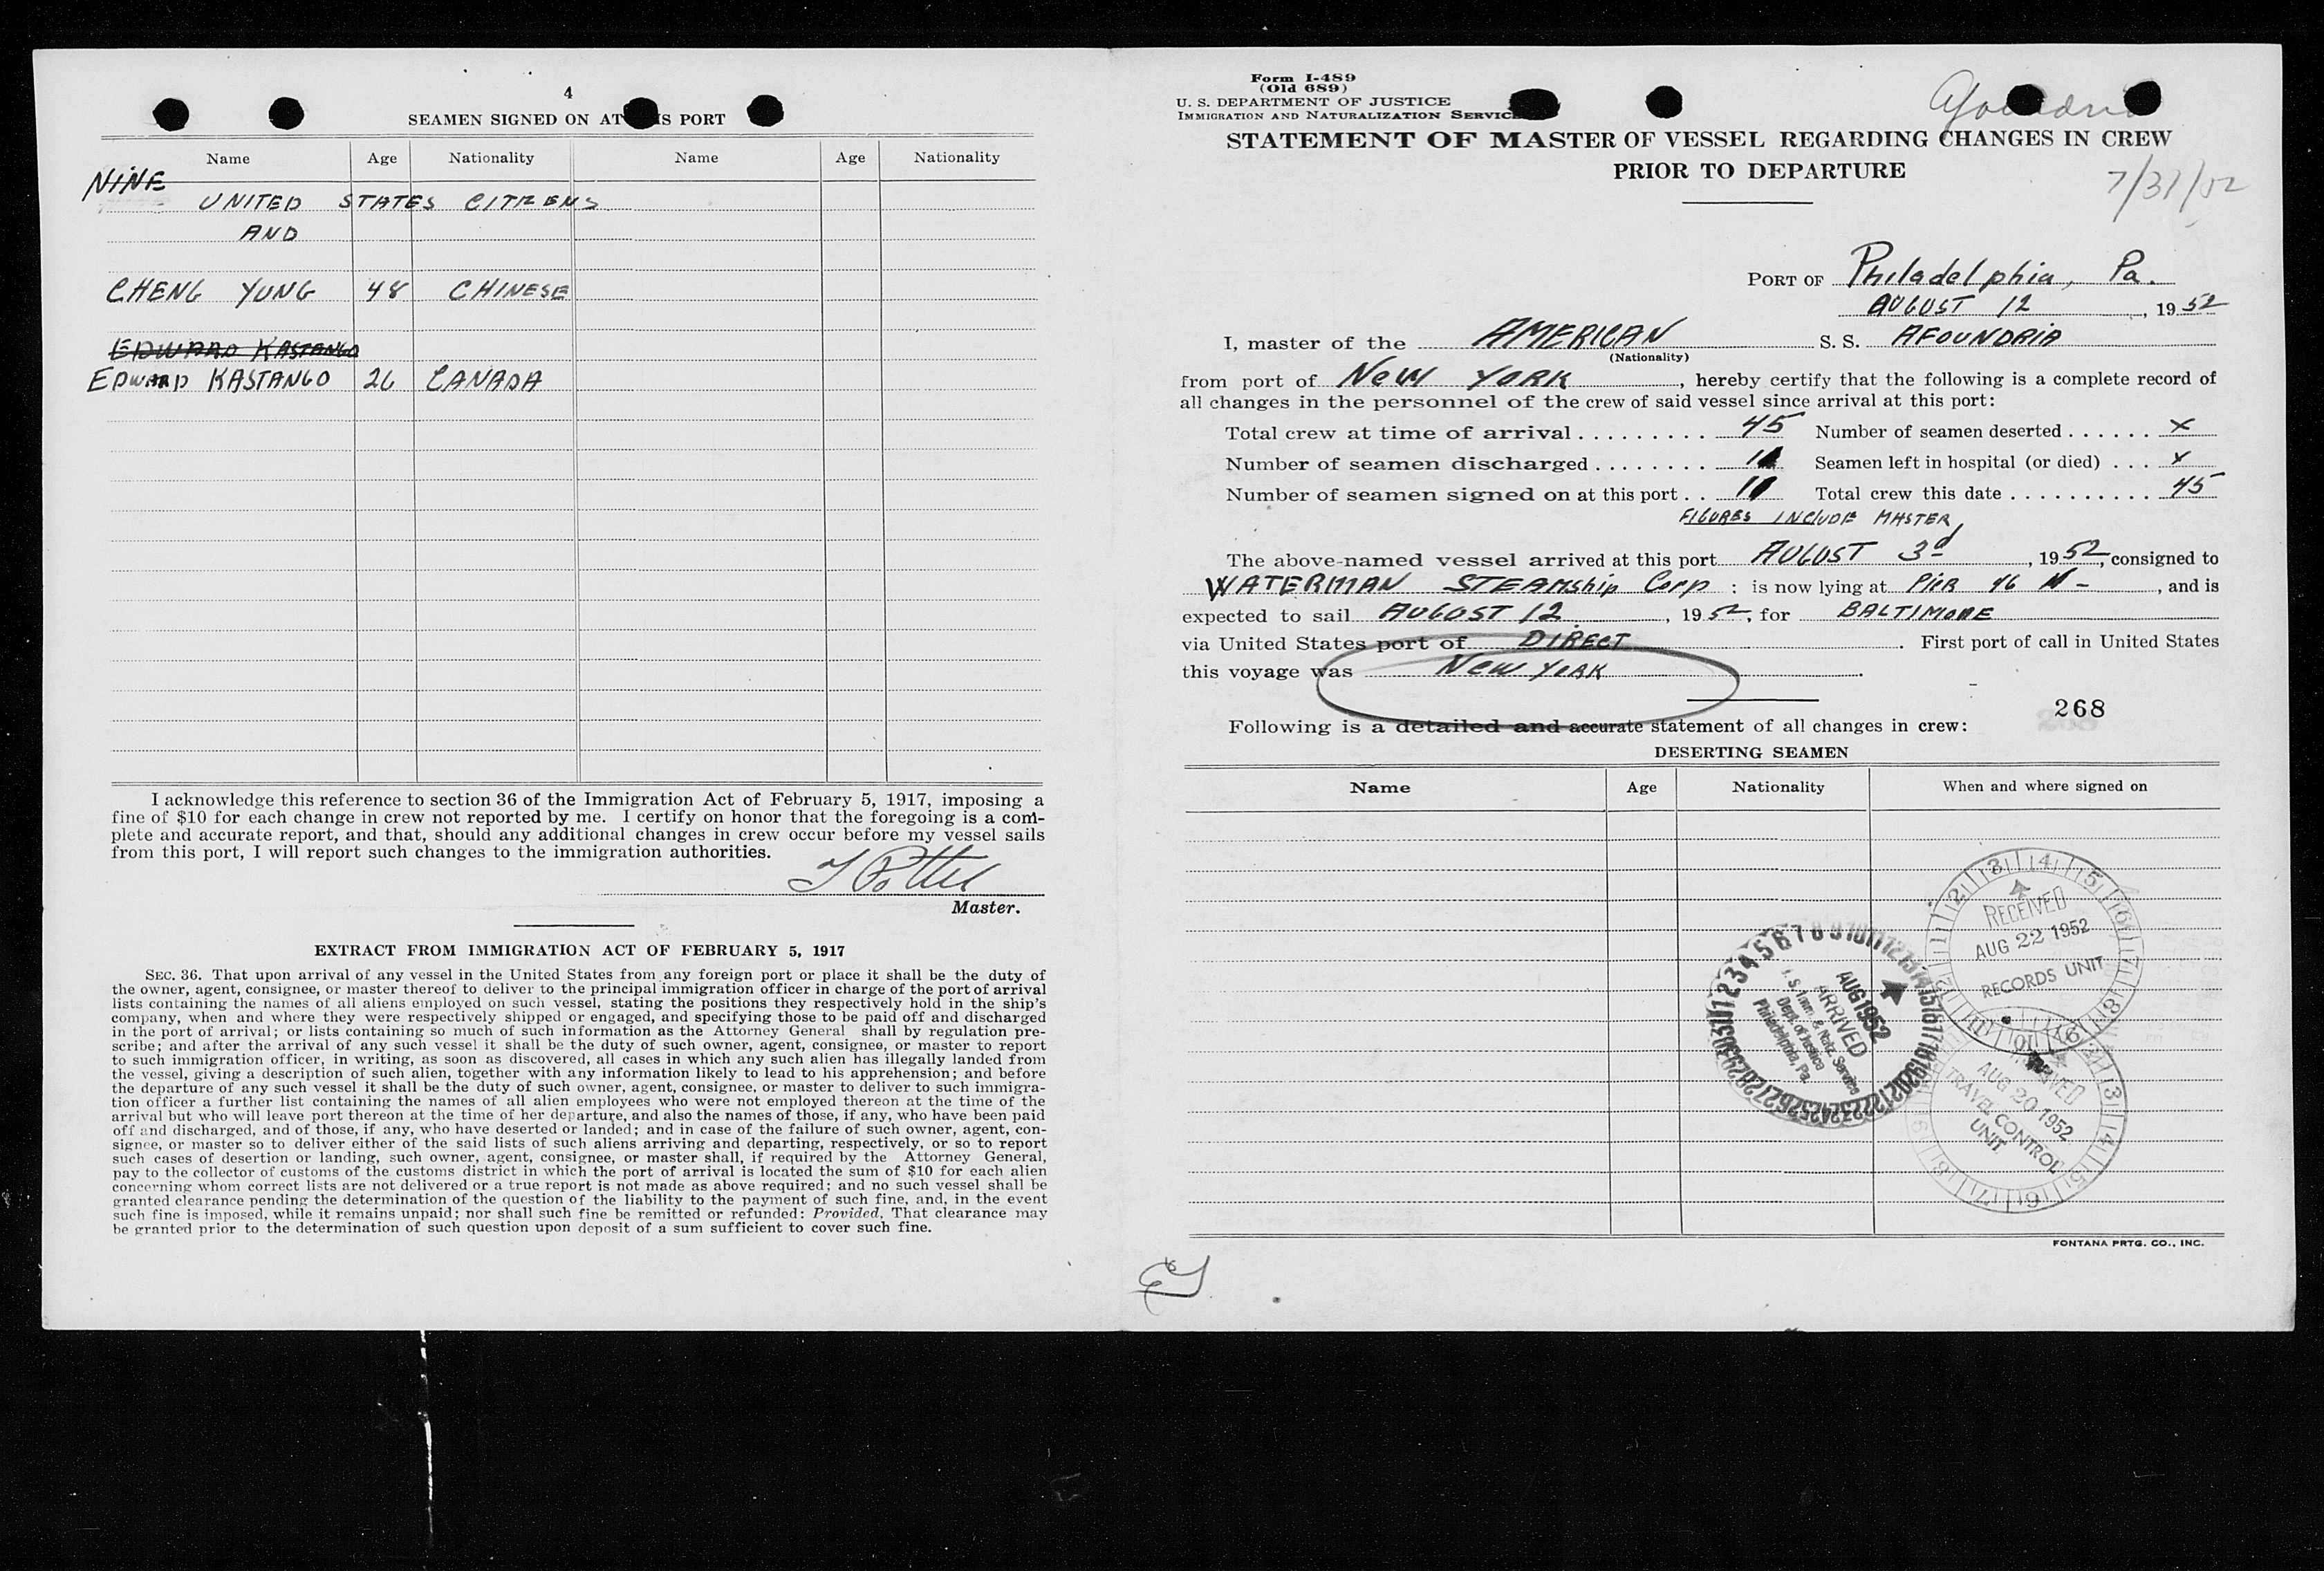 4
SEAMEN SIGNED ON AT IS PORT
Name Age Nationality Name Age Nationality
NINE
UNITED STATES CITIZENS
AND
CHENG YUNG 48 CHINESE
EDWARD KASTANGO
EDWARD KASTANGO 26 CANADA
I acknowledge this reference to section 36 of the Immigration Act of February 5, 1917, imposing a
fine of $10 for each change in crew not reported by me. I certify on honor that the foregoing is a com-
plete and accurate report, and that, should any additional changes in crew occur before my vessel sails
from this port, I will report such changes to the immigration authorities.
Master.
EXTRACT FROM IMMIGRATION ACT OF FEBRUARY 5, 1917
SEC. 36. That upon arrival of any vessel in the United States from any foreign port or place it shall be the duty of
the owner, agent, consignee, or master thereof to deliver to the principal immigration officer in charge of the port of arrival
lists containing the names of all aliens employed on such vessel, stating the positions they respectively hold in the ship's
company, when and where they were respectively shipped or engaged, and specifying those to be paid off and discharged
in the port of arrival; or lists containing so much of such information as the Attorney General shall by regulation pre-
scribe; and after the arrival of any such vessel it shall be the duty of such owner, agent, consignee, or master to report
to such immigration officer, in writing, as soon as discovered, all cases in which any such alien has illegally landed from
the vessel, giving a description of such alien, together with any information likely to lead to his apprehension; and before
the departure of any such vessel it shall be the duty of such owner, agent, consignee, or master to deliver to such immigra-
tion officer a further list containing the names of all alien employees who were not employed thereon at the time of the
arrival but who will leave port thereon at the time of her departure, and also the names of those, if any, who have been paid
off and discharged, and of those, if any, who have deserted or landed; and in case of the failure of such owner, agent, con-
signee, or master so to deliver either of the said lists of such aliens arriving and departing, respectively, or so to report
such cases of desertion or landing, such owner, agent, consignee, or master shall, if required by the Attorney General,
pay to the collector of customs of the customs district in which the port of arrival is located the sum of $10 for each alien
concerning whom correct lists are not delivered or a true report is not made as above required; and no such vessel shall be
granted clearance pending the determination of the question of the liability to the payment of such fine, and, in the event
such fine is imposed, while it remains unpaid; nor shall such fine be remitted or refunded: Provided, That clearance may
be granted prior to the determination of such question upon deposit of a sum sufficient to cover such fine.
Form I-489
(Old 689)
U. S. DEPARTMENT OF JUSTICE
IMMIGRATION AND NATURALIZATION SERVICE
STATEMENT OF MASTER OF VESSEL REGARDING CHANGES IN CREW
PRIOR TO DEPARTURE
7/31/52
PORT OF Philadelphia, Pa.
AUGUST 12, 1952
I, master of the AMERICAN S. S. AFOUNDRIA
(Nationality)
from port of New YORK, hereby certify that the following is a complete record of
all changes in the personnel of the crew of said vessel since arrival at this port:
Total crew at time of arrival......... 45 Number of seamen deserted...... x
Number of seamen discharged........ 11 Seamen left in hospital (or died) ... x
Number of seamen signed on at this port.. 11 Total crew this date........... 45
FIGURES INCLUDE MASTER
The above-named vessel arrived at this port AUGUST 3d, 1952, consigned to
WATERMAN STEAMSHIP Corp : is now lying at PIER 46 N-, and is
expected to sail AUGUST 12, 1952, for BALTIMORE
via United States port of DIRECT. First port of call in United States
this voyage was New YORK.
268
Following is a detailed and accurate statement of all changes in crew:
DESERTING SEAMEN
Name Age Nationality When and where signed on
RECEIVED
AUG 22 1952
RECORDS UNIT
AUG 1952
ARRIVED
Imm. & Natz. Service
Dept. of Justice
Philadelphia, Pa.
AUG 20 1952
TRAVEL CONTROL
UNIT
FONTANA PRTG. CO., INC.